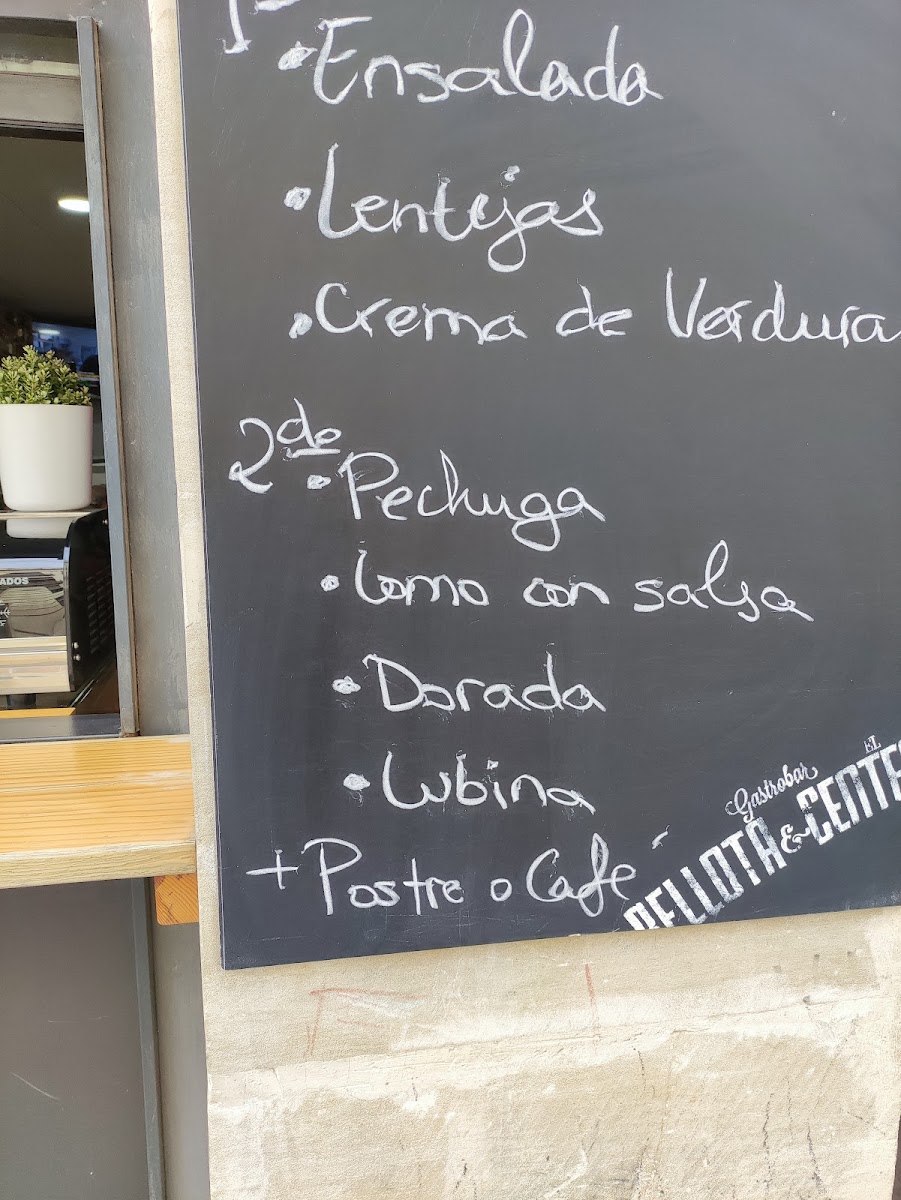 • Ensalada
• Lentijas
• Crema de Verdura
2do
• Pechuga
• Lomo con salsa
• Dorada
• Lubina
+ Postre o Café
Gastrobar
BELLOTA & EL CENTE
ADOS